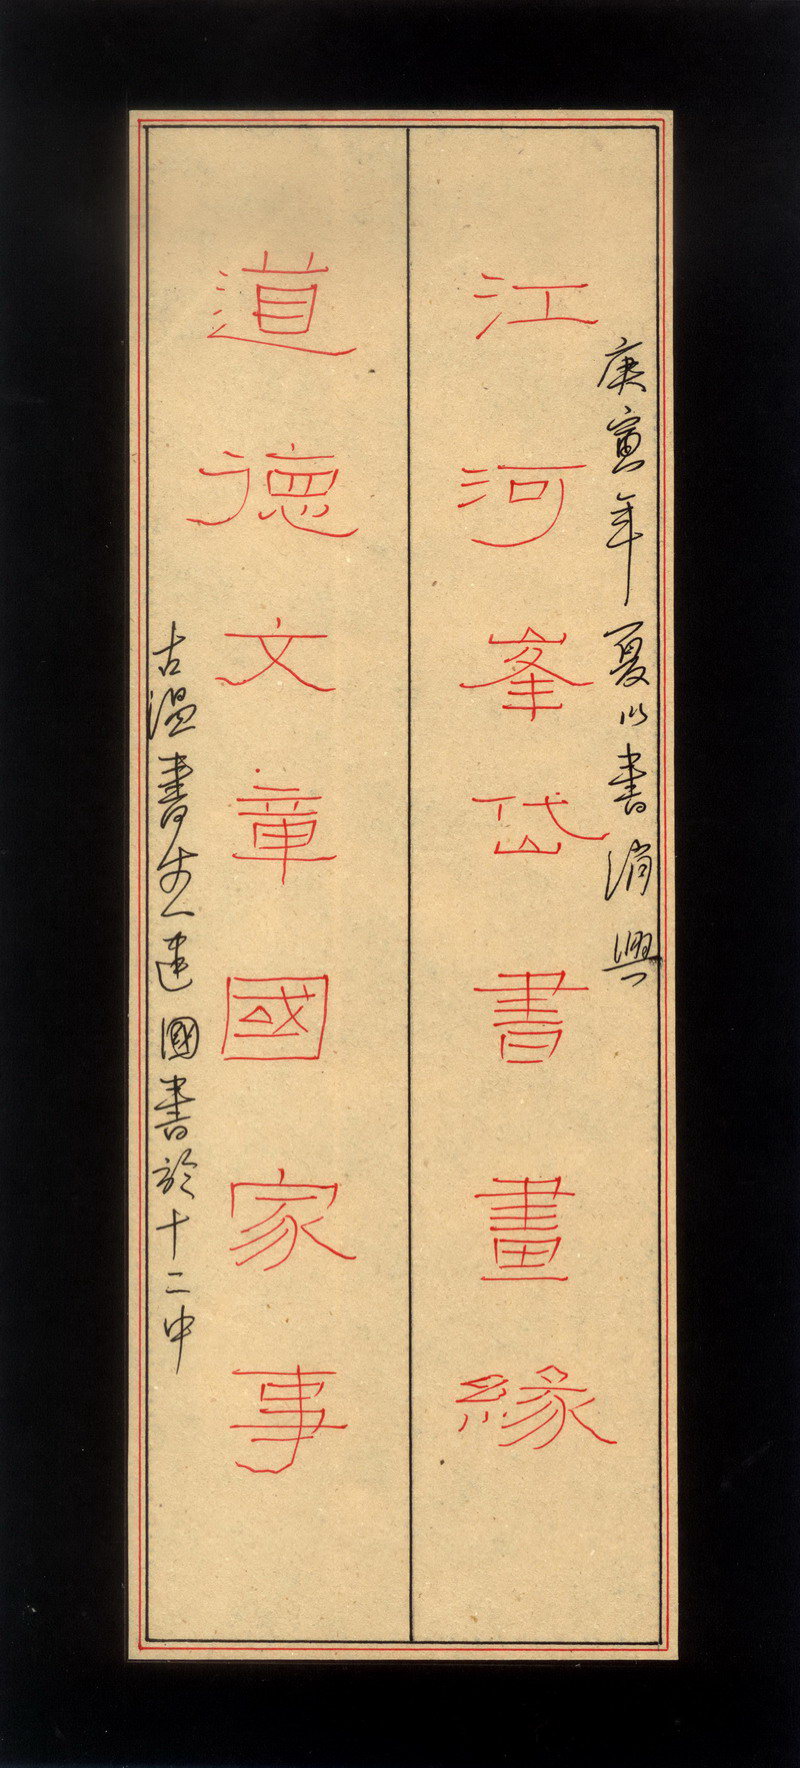 庚寅年夏以書消興
江河峯岱書畫緣
道德文章國家事
古溫書生建國書於十二中